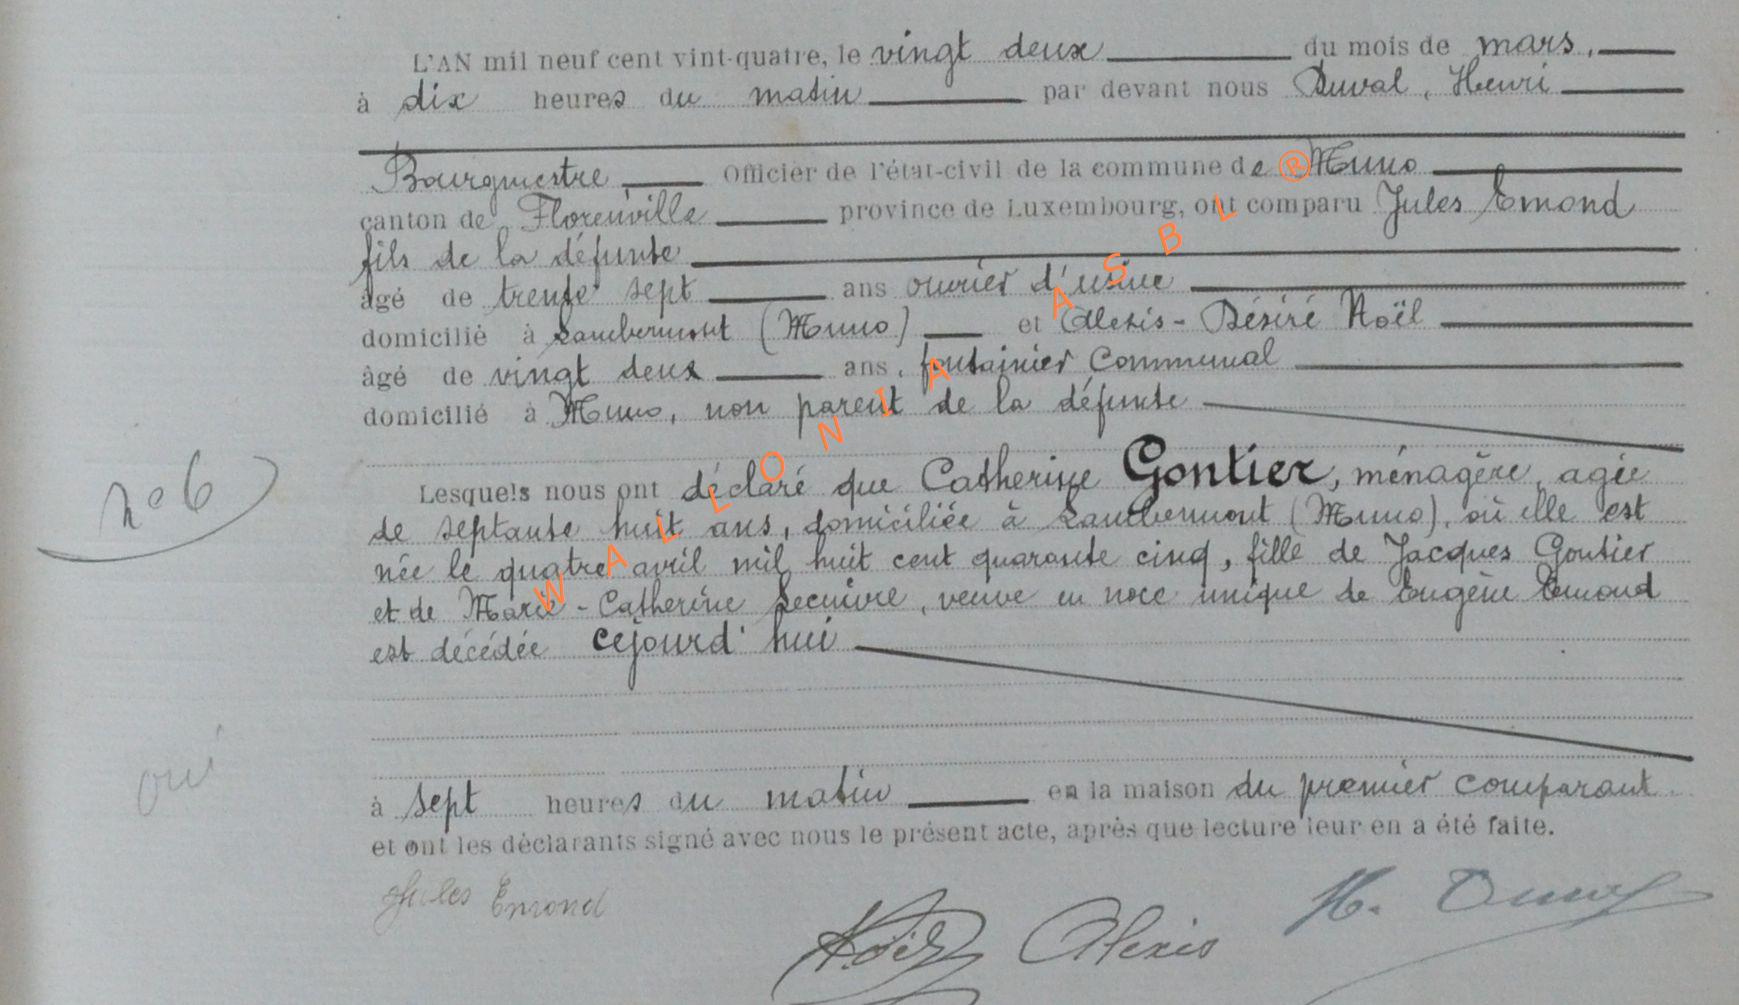 L'AN mil neuf cent vint-quatre, le vingt deux du mois de mars,
à dix heures du matin par devant nous Duval, Henri
Bourgmestre Officier de l'état-civil de la commune de Muno
canton de Florenville province de Luxembourg, ont comparu Jules Emond
fils de la défunte
âgé de trente sept ans ouvrier d'usine
domicilié à Lambermont (Muno) et Alexis-Désiré Noël
âgé de vingt deux ans, fontainier communal
domicilié à Muno, non parent de la défunte
n° 6
Lesquels nous ont déclaré que Catherine Gontier, ménagère, agée
de septante huit ans, domiciliée à Lambermont (Muno), où elle est
née le quatre avril mil huit cent quarante cinq, fille de Jacques Gontier
et de Marie-Catherine Lecuivre, veuve en noce unique de Eugène Emond
est décédée cejourd'hui
oui
à sept heures du matin en la maison du premier comparant
et ont les déclarants signé avec nous le présent acte, après que lecture leur en a été faite.
Jules Emond
Noël Alexis
H. Duval
WALLONIA ASBL ®